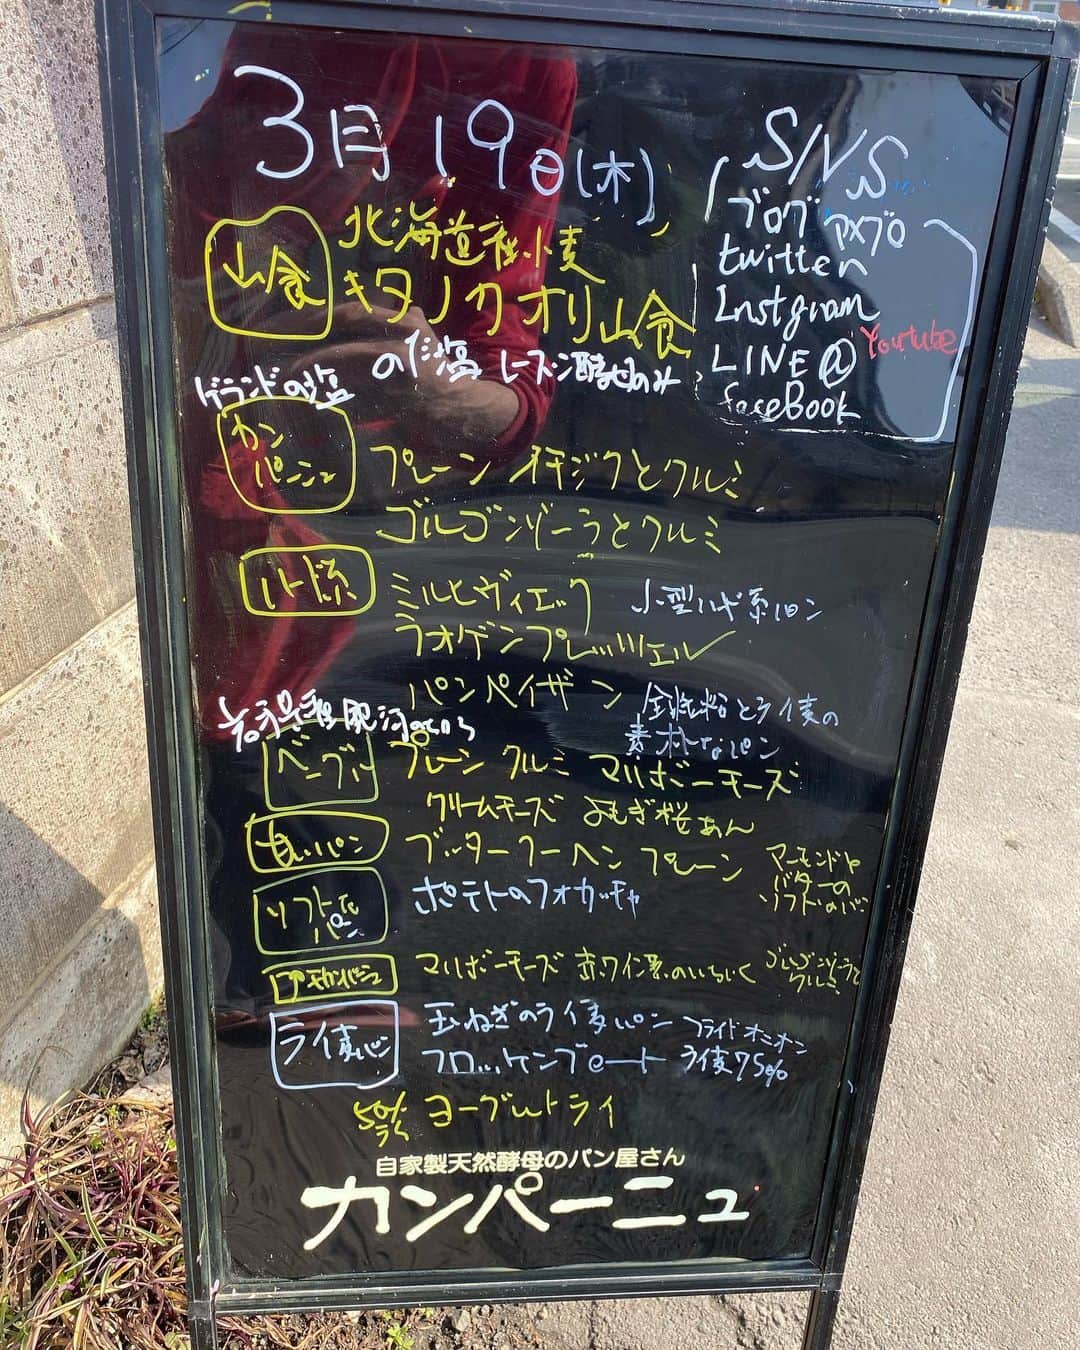 3月19日(木)
SNS
ブログ アメブロ
twitter
Instgram
LINE@ Youtube
faceBook
山食
北海道産小麦
キタノカオリ山食
のだ塩 レーズン酵母のみ
ゲランドの塩
カンパーニュ
プレーン イチジクとクルミ
ゴルゴンゾーラとクルミ
ハード系
ミルヒヴィエック 小型ハード系
ラオゲンプレッツェル
パンペイザン 全粒粉とライ麦の
素朴なパン
ベーグル
プレーン クルミ マリボーチーズ
クリームチーズ よもぎ桜あん
甘いパン
ブッタークーヘン プレーン アーモンドと
バターの
ソフトな
ソフトなパン
ポテトのフォカッチャ
プチカンパーニュ
マリボーチーズ 赤ワイン煮のいちじく ゴルゴンゾーラと
クルミ
ライ麦パン
玉ねぎのライ麦パン フライドオニオン
フロッケンブロート ライ麦75%
50% ヨーグルトライ
自家製天然酵母のパン屋さん
カンパーニュ